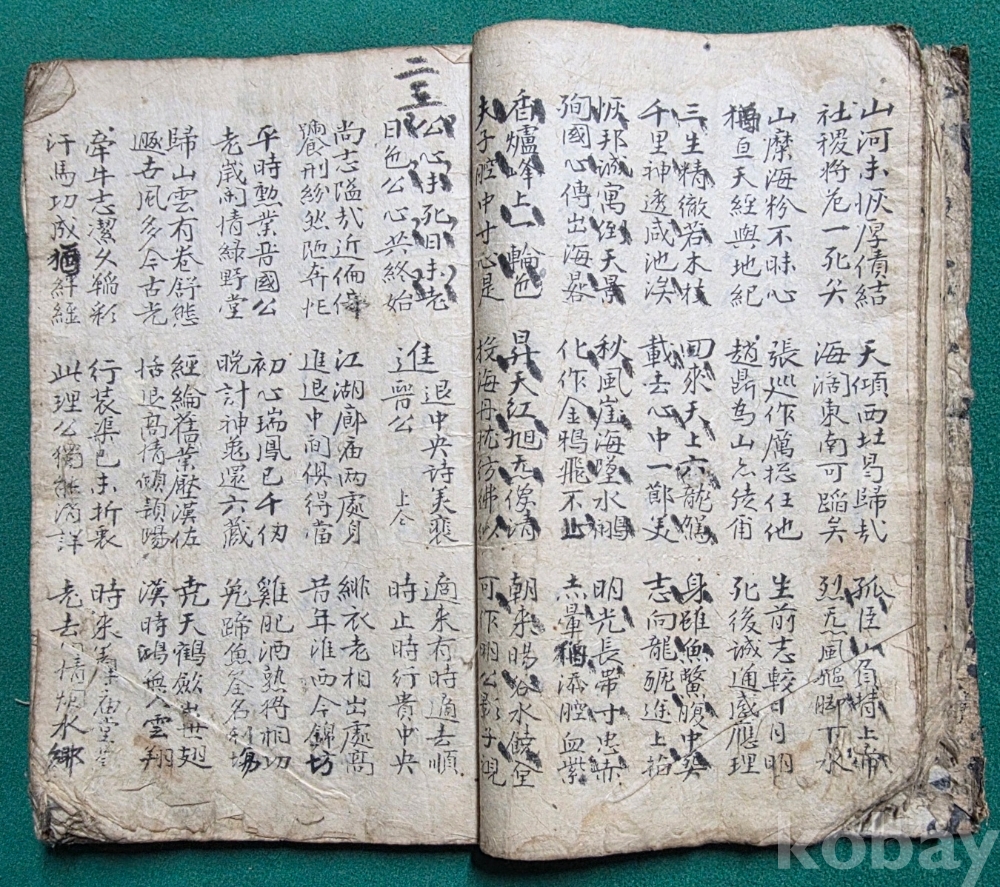 山河未恢厚債結
社稷將危一死矣
天傾西北曷歸哉
海闊東南可蹈矣
孤臣山負持上帝
烈烈風驅脚下水
山摩海粉不昧心
猶亘天經與地紀
張巡作厲揔任他
趙鼎爲山
生前志較日月明
死後誠通感應理
三生精徹若木枝
千里神透咸池涘
回來天上六龍駕
載去心中一鄭吏
身雖魚鱉腹中葬
志向龍 途上指
恢邦誠寓 天晷
殉國心傳出海晷
秋風崖海墮水鵬
化作金鴉飛不止
明光長帶寸忠赤
赤暈猶添腔血紫
香爐峰上一輪色
夫子腔中寸心是
昇天紅旭无 清
投海丹忱彷彿似
朝來暘谷水鏡金
可作明公影子視
二五
公心未死日未老
日色公心共終始
進退中央詩美裴
晉公 上仝
適來有時適去順
時止時行貴中央
尚志隘哉近倫
刑紛然陋奔忙
江湖廊庙两處身
進退中間俱得當
緋衣老相出處高
昔年淮西今錦坊
平時勳業晉國公
老歲閑情綠野堂
初心瑞鳳已千仞
晚計神龜還六藏
雞肥酒熟將相功
兔蹄魚筌名利場
歸山雲有卷舒態
邈古風多今古光
經綸舊業壓漢佐
恬退高情傾潁陽
堯天鶴 出 翅
漢時鴻 入雲翔
牽牛志潔久韜彩
汗馬功成猶
行裝渠已未折衷
此理公獨能消詳
時來 庙堂
老去閑情烟水鄉